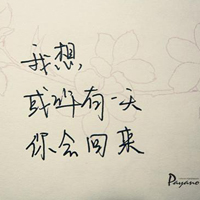 我想，
或许有一天
你会回来
Payano